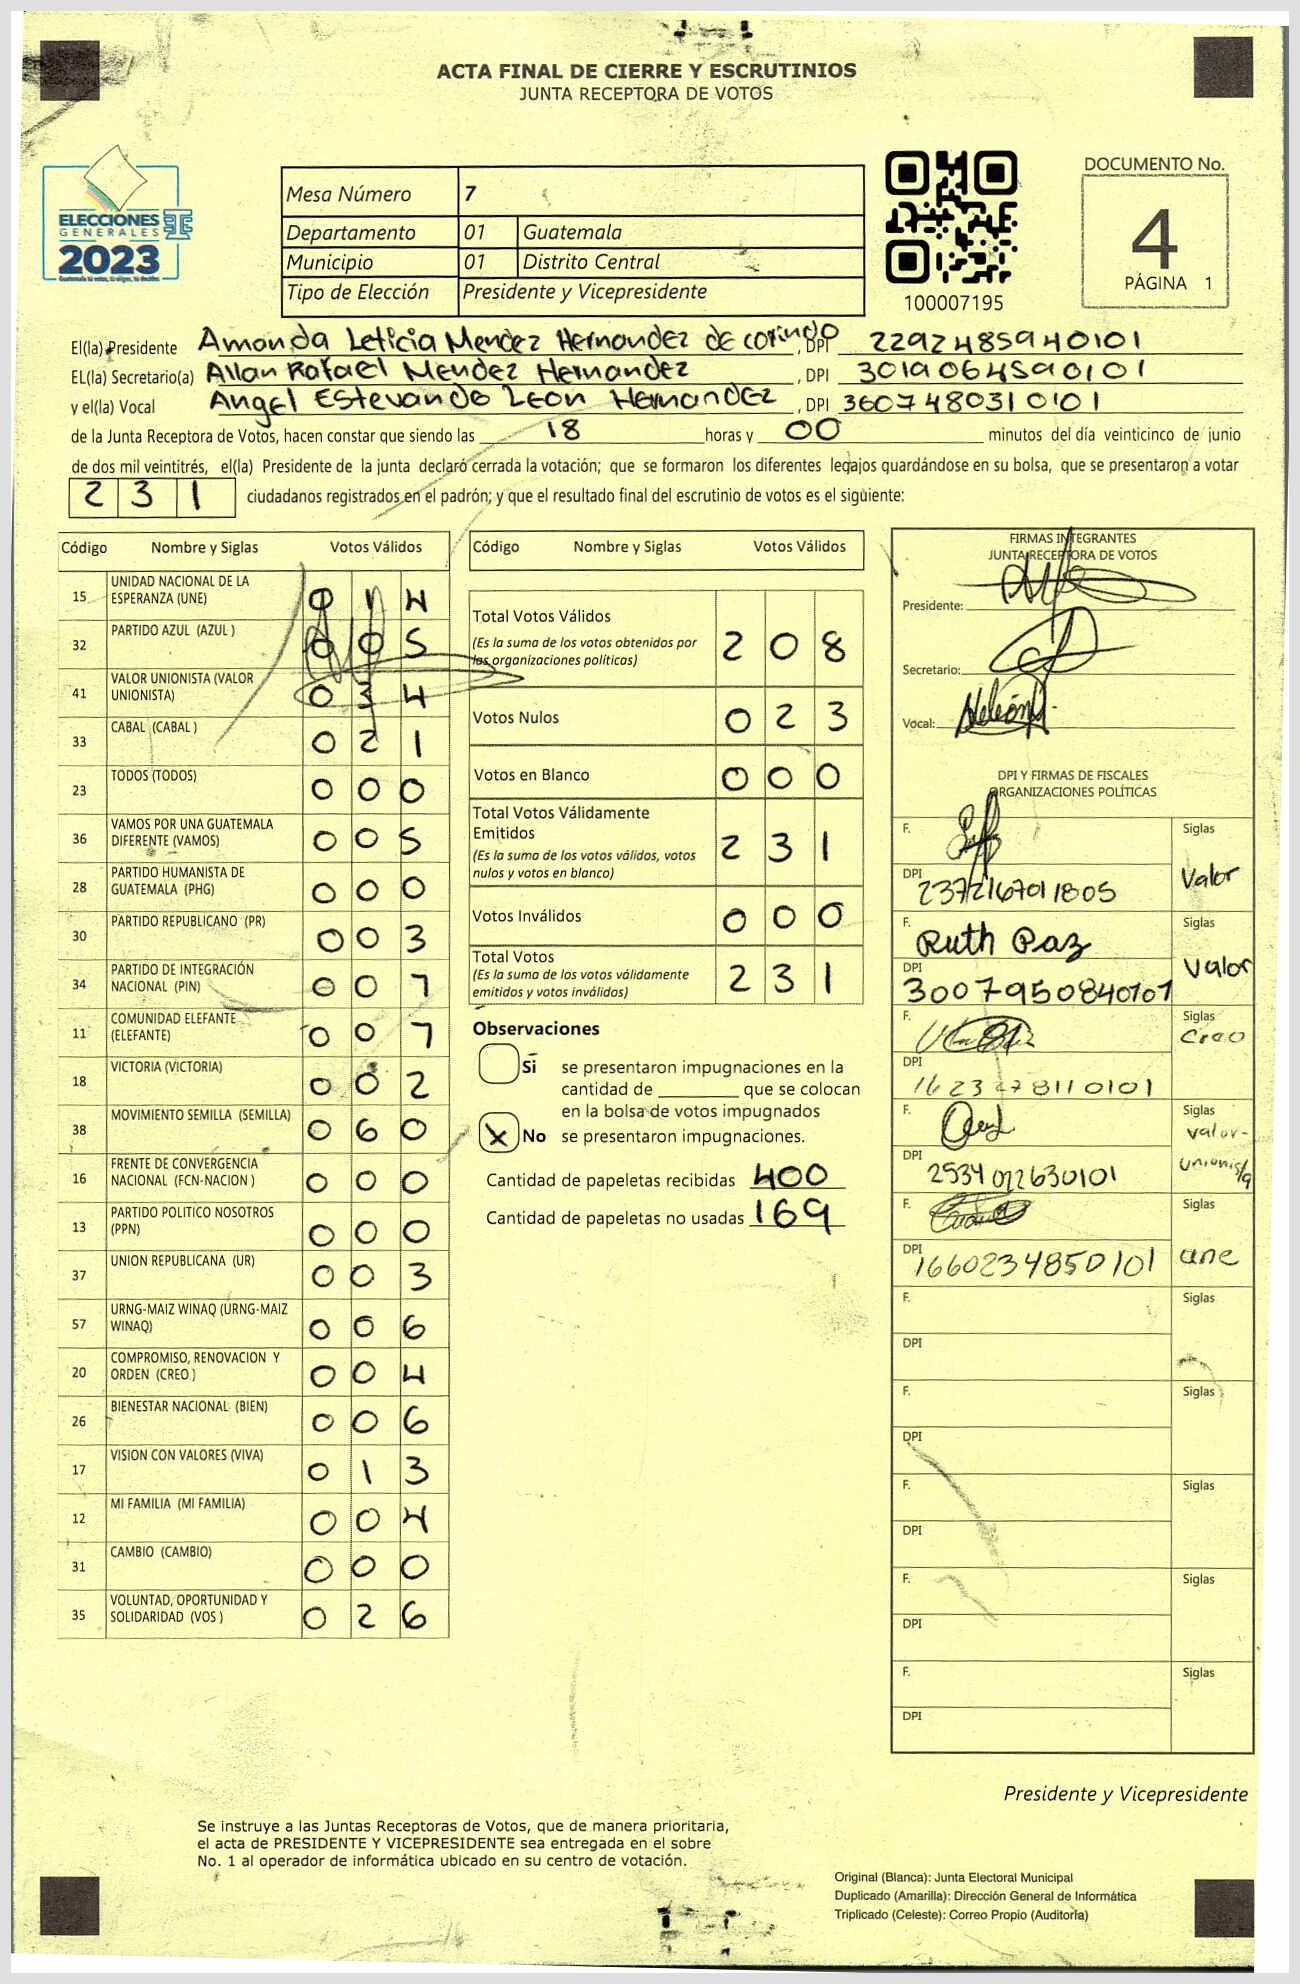 ACTA FINAL DE CIERRE Y ESCRUTINIOS
JUNTA RECEPTORA DE VOTOS
ELECCIONES
GENERALES
2023
Mesa Número 7
Departamento 01 Guatemala
Municipio 01 Distrito Central
Tipo de Elección Presidente y Vicepresidente
100007195
DOCUMENTO No.
4
PÁGINA 1
El(la) Presidente Amanda Leticia Mendez Hernandez de , DPI 2292485940101
EL(la) Secretario(a) Allan Rafael Mendez Hernandez , DPI 3019064590101
y el(la) Vocal Angel Estevando Leon Hernandez , DPI 3607480310101
de la Junta Receptora de Votos, hacen constar que siendo las 18 horas y 00 minutos del día veinticinco de junio
de dos mil veintitrés, el(la) Presidente de la junta declaró cerrada la votación; que se formaron los diferentes legajos guardándose en su bolsa, que se presentaron a votar
231 ciudadanos registrados en el padrón; y que el resultado final del escrutinio de votos es el siguiente:
Código Nombre y Siglas Votos Válidos
15 UNIDAD NACIONAL DE LA ESPERANZA (UNE) 0 1 4
32 PARTIDO AZUL (AZUL ) 0 0 5
41 VALOR UNIONISTA (VALOR UNIONISTA) 0 3 4
33 CABAL (CABAL ) 0 2 1
23 TODOS (TODOS) 0 0 0
36 VAMOS POR UNA GUATEMALA DIFERENTE (VAMOS) 0 0 5
28 PARTIDO HUMANISTA DE GUATEMALA (PHG) 0 0 0
30 PARTIDO REPUBLICANO (PR) 0 0 3
34 PARTIDO DE INTEGRACIÓN NACIONAL (PIN) 0 0 7
11 COMUNIDAD ELEFANTE (ELEFANTE) 0 0 7
18 VICTORIA (VICTORIA) 0 0 2
38 MOVIMIENTO SEMILLA (SEMILLA) 0 6 0
16 FRENTE DE CONVERGENCIA NACIONAL (FCN-NACION ) 0 0 0
13 PARTIDO POLITICO NOSOTROS (PPN) 0 0 0
37 UNION REPUBLICANA (UR) 0 0 3
57 URNG-MAIZ WINAQ (URNG-MAIZ WINAQ) 0 0 6
20 COMPROMISO, RENOVACION Y ORDEN (CREO ) 0 0 4
26 BIENESTAR NACIONAL (BIEN) 0 0 6
17 VISION CON VALORES (VIVA) 0 1 3
12 MI FAMILIA (MI FAMILIA) 0 0 4
31 CAMBIO (CAMBIO) 0 0 0
35 VOLUNTAD, OPORTUNIDAD Y SOLIDARIDAD (VOS ) 0 2 6
Código Nombre y Siglas Votos Válidos
Total Votos Válidos 2 0 8
(Es la suma de los votos obtenidos por las organizaciones políticas)
Votos Nulos 0 2 3
Votos en Blanco 0 0 0
Total Votos Válidamente Emitidos 2 3 1
(Es la suma de los votos válidos, votos nulos y votos en blanco)
Votos Inválidos 0 0 0
Total Votos 2 3 1
(Es la suma de los votos válidamente emitidos y votos inválidos)
Observaciones
Sí se presentaron impugnaciones en la
cantidad de ________ que se colocan
en la bolsa de votos impugnados
X No se presentaron impugnaciones.
Cantidad de papeletas recibidas 400
Cantidad de papeletas no usadas 169
FIRMAS INTEGRANTES
JUNTA RECEPTORA DE VOTOS
Presidente:
Secretario:
Vocal:
DPI Y FIRMAS DE FISCALES
ORGANIZACIONES POLÍTICAS
F. Siglas Valor
DPI 2372167011805
F. Ruth Paz Siglas Valor
DPI 3007950840101
F. Siglas Creo
DPI 1623278110101
F. Siglas Valor-Unionista
DPI 2534022630101
F. Siglas une
DPI 1660234850101
F. Siglas
DPI
F. Siglas
DPI
F. Siglas
DPI
F. Siglas
DPI
F. Siglas
DPI
Presidente y Vicepresidente
Se instruye a las Juntas Receptoras de Votos, que de manera prioritaria,
el acta de PRESIDENTE Y VICEPRESIDENTE sea entregada en el sobre
No. 1 al operador de informática ubicado en su centro de votación.
Original (Blanca): Junta Electoral Municipal
Duplicado (Amarilla): Dirección General de Informática
Triplicado (Celeste): Correo Propio (Auditoría)